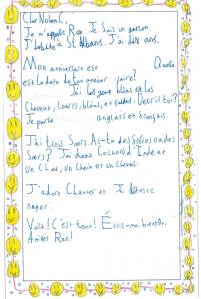 Cher Nolan C,
Je m'appelle Rae. Je Suis un garçon.
J'habite à St Albans. J'ai dix ans.
Mon anniversaire est A quelle
est la date de ton anniversaire?
J'ai les yeux bleus et les
Cheveux, courts, blonds, et raides. Decris toi?
Je parle anglais et français.
J'ai trois Sœurs. As-tu des frères ou des
Sœurs? J'ai deux Cochons d'Inde et
un Chat, un Chein et un Cheval.
J'adore Chanter et Je deteste
nager.
Voilà! C'est tout! Écris-moi bientôt.
Amitiés Rae!